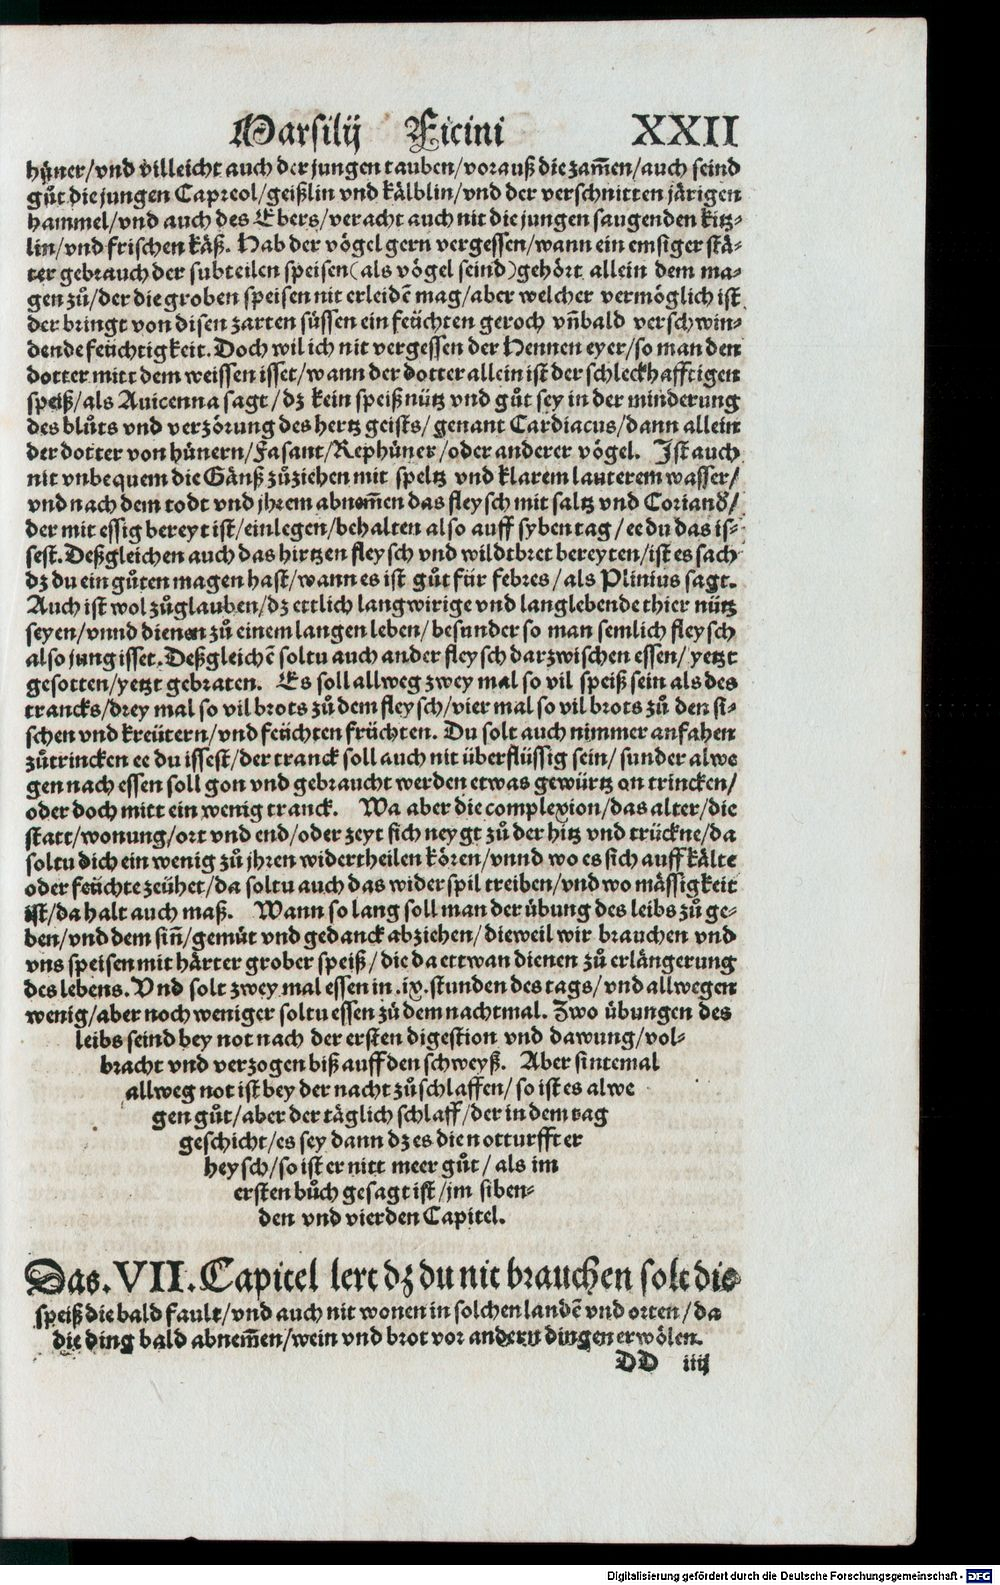 Marsilij Ficini XXII
hüner/vnd villeicht auch der jungen tauben/vorauß die zam̃en/auch seind
gůt die jungen Capreol/geißlin vnd kälblin/vnd der verschnitten järigen
hammel/vnd auch des Ebers/veracht auch nit die jungen saugenden kitz⸗
lin/vnd frischen käß. Hab der vögel gern vergessen/wann ein emsiger stä⸗
ter gebrauch der subteilen speisen(als vögel seind)gehört allein dem ma⸗
gen zů/der die groben speisen nit erleidẽ mag/aber welcher vermöglich ist
der bringt von disen zarten süssen ein feüchten geroch vn̄ bald verschwin⸗
dende feüchtigkeit. Doch wil ich nit vergessen der Hennen eyer/so man den
dotter mitt dem weissen isset/wann der dotter allein ist der schleckhafftigen
speiß/als Auicenna sagt/dz kein speiß nütz vnd gůt sey in der minderung
des blůts vnd verzörung des hertz geists/genant Cardiacus/dann allein
der dotter von hünern/Fasant/Rephüner/oder anderer vögel. Ist auch
nit vnbequem die Gänß zůziehen mit speltz vnd klarem lauterem wasser/
vnd nach dem todt vnd jhrem abnem̃en das fleysch mit saltz vnd Coriand̕/
der mit essig bereyt ist/einlegen/behalten also auff syben tag/ee du das is⸗
sest. Deßgleichen auch das hirtzen fleysch vnd wildtbret bereyten/ist es sach
dz du ein gůten magen hast/wann es ist gůt für febres/als Plinius sagt.
Auch ist wol zůglauben/dz ettlich langwirige vnd langlebende thier nütz
seyen/vnnd dienen zů einem langen leben/besunder so man semlich fleysch
also jung isset. Deßgleichẽ soltu auch ander fleysch darzwischen essen/yetzt
gesotten/yetzt gebraten. Es soll allweg zwey mal so vil speiß sein als des
trancks/drey mal so vil brots zů dem fleysch/vier mal so vil brots zů den fi⸗
schen vnd kreütern/vnd feüchten früchten. Du solt auch nimmer anfahen
zůtrincken ee du issest/der tranck soll auch nit überflüssig sein/sunder alwe
gen nach essen soll gon vnd gebraucht werden etwas gewürtz on trincken/
oder doch mitt ein wenig tranck. Wa aber die complexion/das alter/die
statt/wonung/ort vnd end/oder zeyt sich neygt zů der hitz vnd trückne/da
soltu dich ein wenig zů jhren widertheilen kören/vnnd wo es sich auff kälte
oder feüchte zeühet/da soltu auch das widerspil treiben/vnd wo mässigkeit
ist/da halt auch maß. Wann so lang soll man der übung des leibs zů ge⸗
ben/vnd dem sin̄/gemüt vnd gedanck abziehen/dieweil wir brauchen vnd
vns speisen mit härter grober speiß/die da ettwan dienen zů erlängerung
des lebens. Vnd solt zwey mal essen in .ix. stunden des tags/vnd allwegen
wenig/aber noch weniger soltu essen zů dem nachtmal. Zwo übungen des
leibs seind bey not nach der ersten digestion vnd dawung/vol⸗
bracht vnd verzogen biß auff den schweyß. Aber sintemal
allweg not ist bey der nacht zůschlaffen/so ist es alwe
gen gůt/aber der täglich schlaff/der in dem tag
geschicht/es sey dann dz es die notturfft er
heysch/so ist er nitt meer gůt/als im
ersten bůch gesagt ist/jm siben⸗
den vnd vierden Capitel.
Das. VII. Capitel lert dz du nit brauchen solt die
speiß die bald fault/vnd auch nit wonen in solchen landẽ vnd orten/da
die ding bald abnem̃en/wein vnd brot vor andern dingen erwölen.
DD iiij
Digitalisierung gefördert durch die Deutsche Forschungsgemeinschaft - DFG